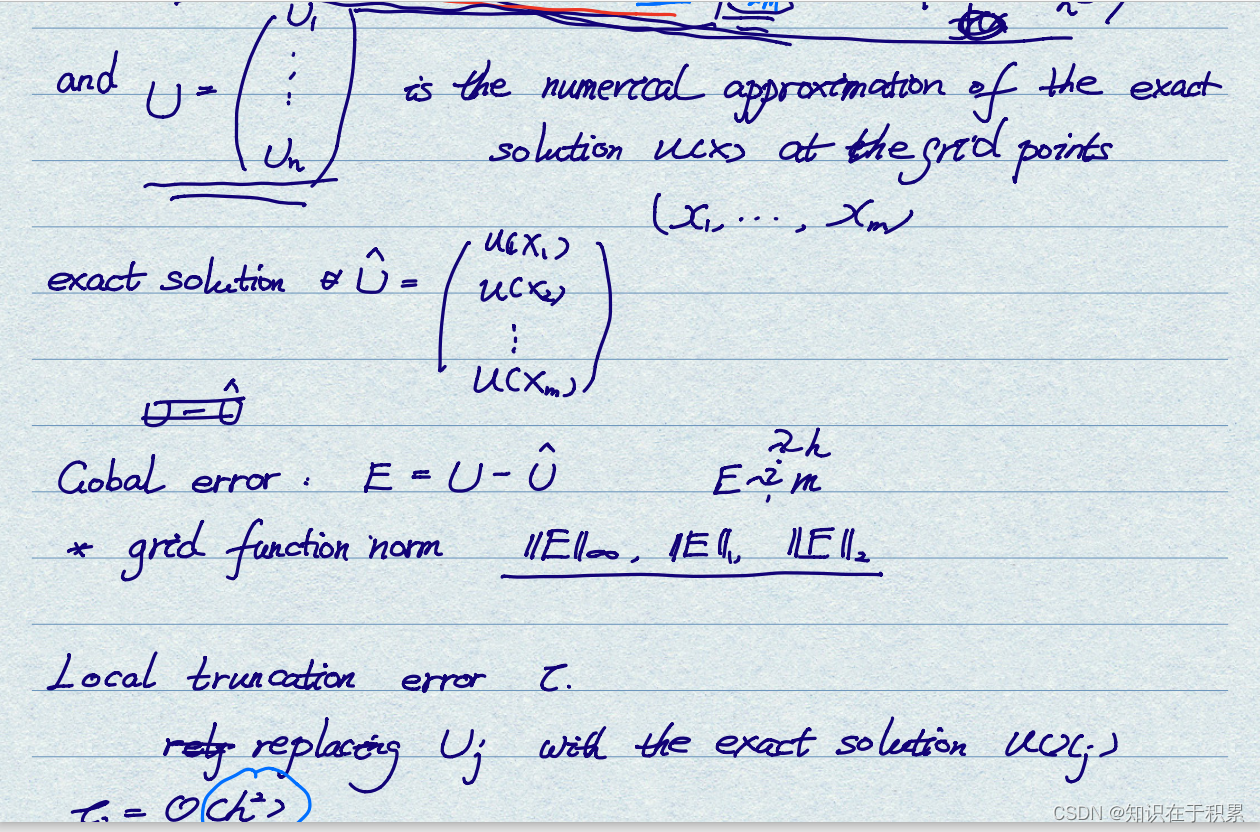 U₁
and U = ( ⋮ ) is the numerical approximation of the exact
Uₙ solution u(x) at the grid points
(x₁, ..., xₘ)
exact solution Û = ( u(x₁)
u(x₂)
⋮
u(xₘ) )
U - Û
Gobal error : E = U - Û
* grid function norm ‖E‖∞, ‖E‖₁, ‖E‖₂
Local truncation error τ.
replacing Uⱼ with the exact solution u(xⱼ)
= O(h²)
CSDN @知识在于积累